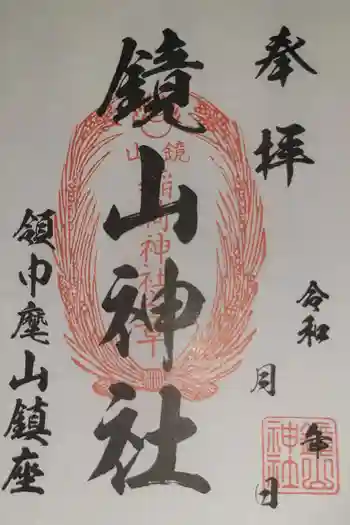 奉拝
令和 年
月 日
鏡山神社
鏡山
稲荷神社
領巾麾山鎮座
鏡山
神社